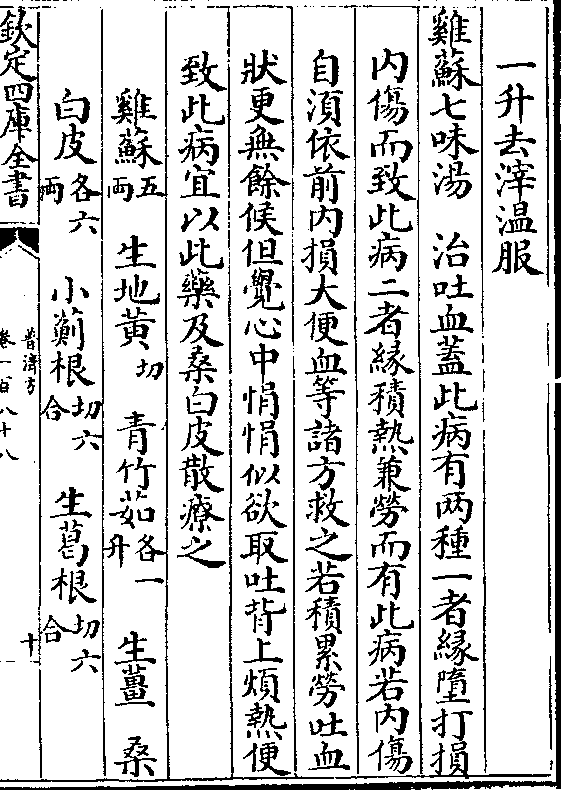 一升去滓温服
雞蘇七味湯　治吐血蓋此病有两種一者緣墮打損
内傷而致此病二者緣積熱兼勞而有此病若内傷
自湏依前内損大便血等諸方救之若積累勞吐血
狀更無餘候但覺心中悁悁似欲取吐背上煩熱便
致此病宜以此藥及桑白皮散療之
雞蘇五兩　生地黄切　青竹茹各一升　生薑　桑
白皮各六兩　小薊根切六合　生葛根切六合
欽定四庫全書
普濟方
卷一百八十八
十